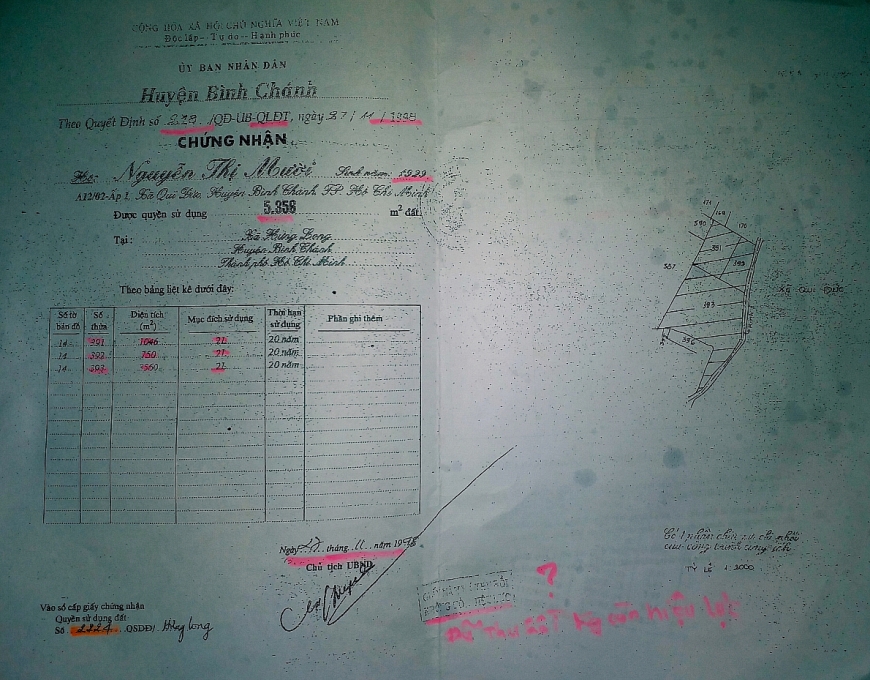 CỘNG HÒA XÃ HỘI CHỦ NGHĨA VIỆT NAM
Độc lập - Tự do - Hạnh phúc
ỦY BAN NHÂN DÂN
Huyện Bình Chánh
Theo Quyết Định số /QĐ-UB-QLĐT, ngày 27 / 11 /
CHỨNG NHẬN
Hộ: Nguyễn Thị Mười Sinh năm: 1929
A12/02-Ấp 1, Xã Qui Đức, Huyện Bình Chánh, TP Hồ Chí Minh
Được quyền sử dụng 5.356 m² đất
Tại: Xã Hưng Long
Huyện Bình Chánh
Thành phố Hồ Chí Minh
Theo bảng liệt kê dưới đây:
Số tờ bản đồ Số thửa Diện tích (m²) Mục đích sử dụng Thời hạn sử dụng Phần ghi thêm
14 391 1046 2L 20 năm
14 392 750 2L 20 năm
14 393 3560 2L 20 năm
Ngày 27 tháng 11 năm 199
Chủ tịch UBND
Vào sổ cấp giấy chứng nhận
Quyền sử dụng đất
Số QSDĐ/ Hưng Long
474
590
176
391
557
393
396
Xã Qui Đức
TỶ LỆ 1:2000
?